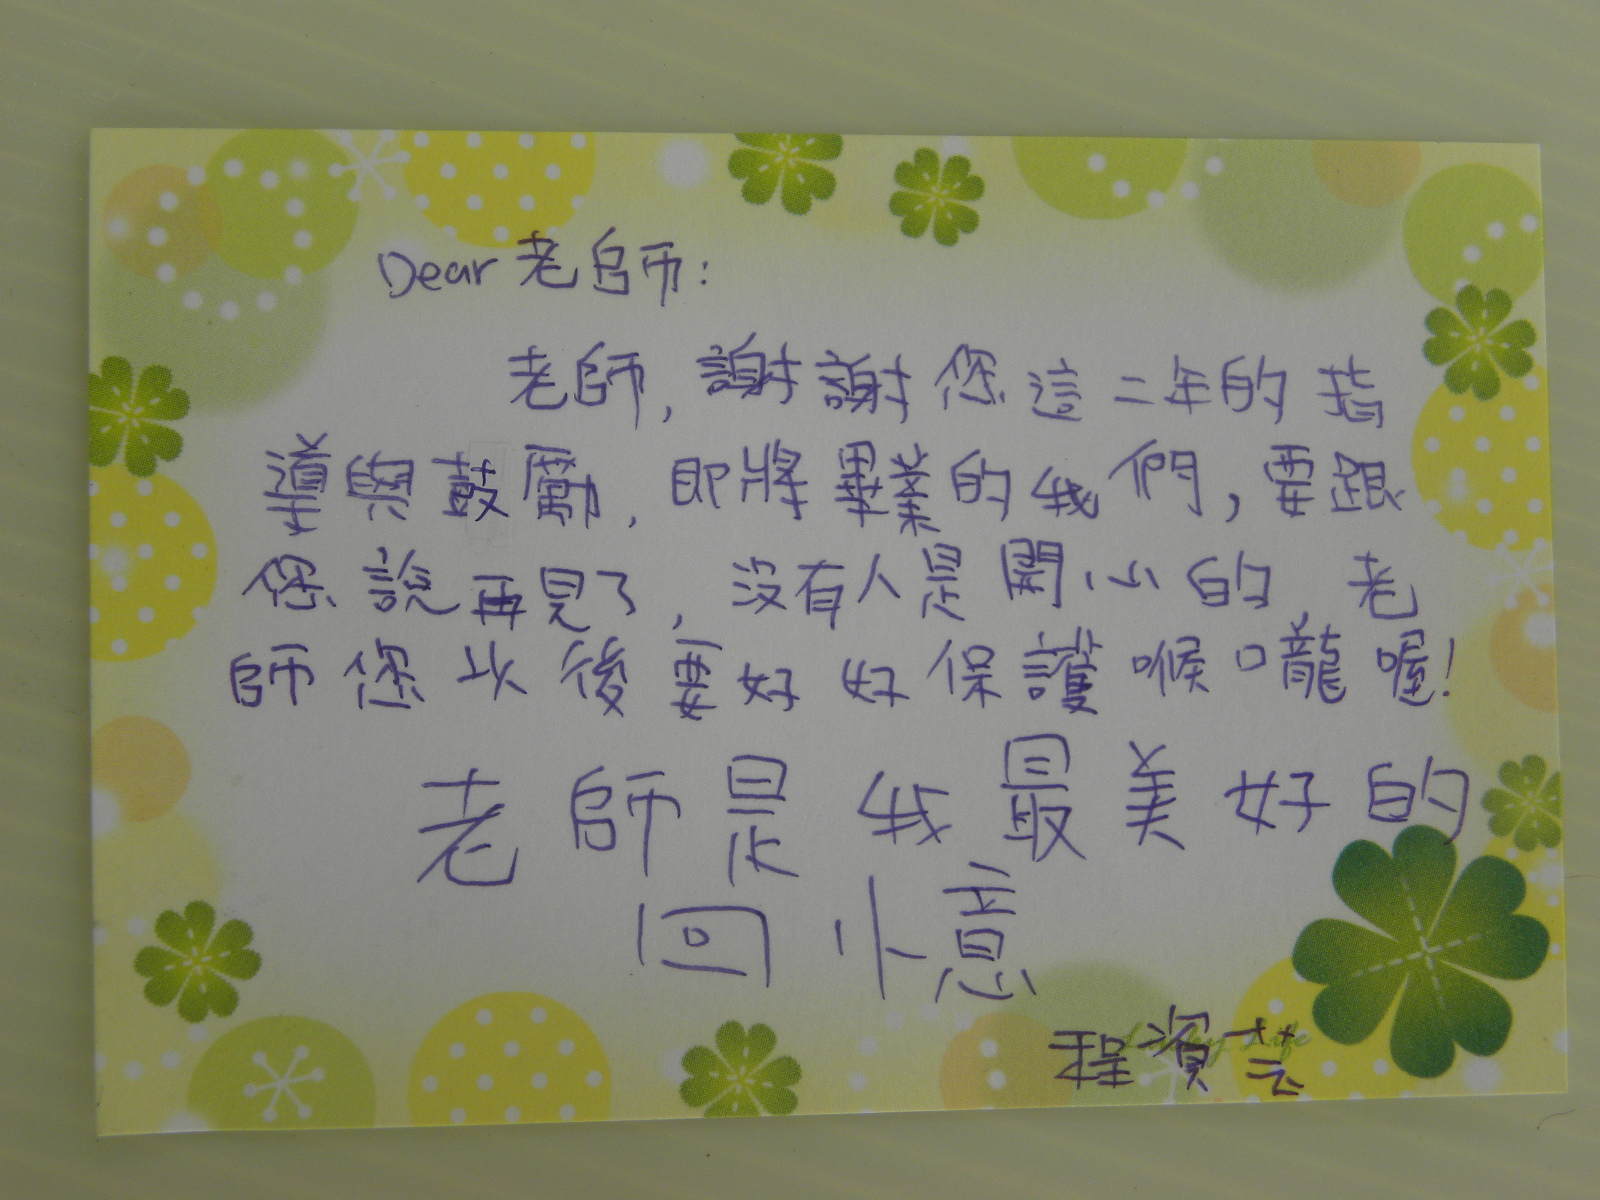 Dear 老師:
老師,謝謝您這二年的指
導與鼓勵,即將畢業的我們,要跟
您說再見了,沒有人是開心的,老
師您以後要好好保護喉嚨喔!
老師是我最美好的
回憶
Lucky Life
程資芸